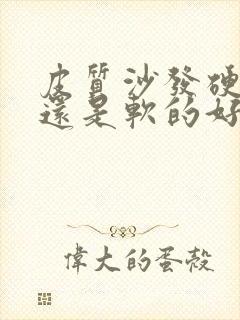 皮質沙發硬
還是軟的好
偉大的蛋殼